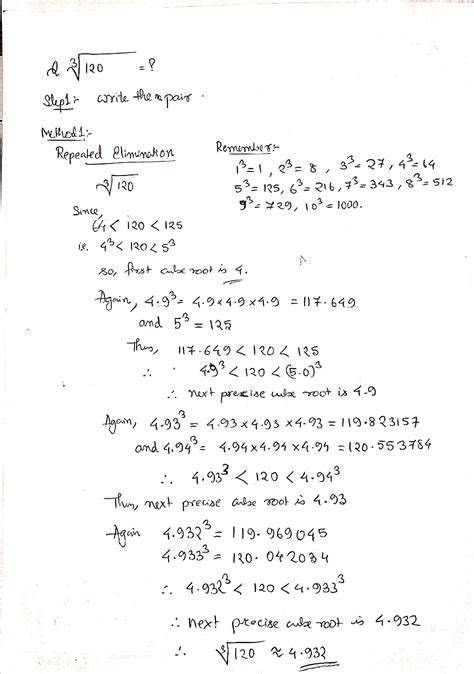 Q ∛120 = ?
Step1:- Write the a pair.
Method1:-
Repeated Elimination
∛120
Remember:-
1³=1, 2³=8, 3³=27, 4³=64
5³=125, 6³=216, 7³=343, 8³=512
9³=729, 10³=1000.
Since,
64 < 120 < 125
is. 4³ < 120 < 5³
so, first cube root is 4.
Again, 4.9³ = 4.9×4.9×4.9 = 117.649
and 5³ = 125
Thus, 117.649 < 120 < 125
∴ 4.9³ < 120 < (5.0)³
∴ next precise cube root is 4.9
Again, 4.93³ = 4.93×4.93×4.93 = 119.823157
and 4.94³ = 4.94×4.94×4.94 = 120.553784
∴ 4.93³ < 120 < 4.94³
Thus, next precise cube root is 4.93
Again 4.932³ = 119.969045
4.933³ = 120.042034
∴ 4.932³ < 120 < 4.933³
∴ next precise cube root is 4.932
∴ ∛120 ≈ 4.932